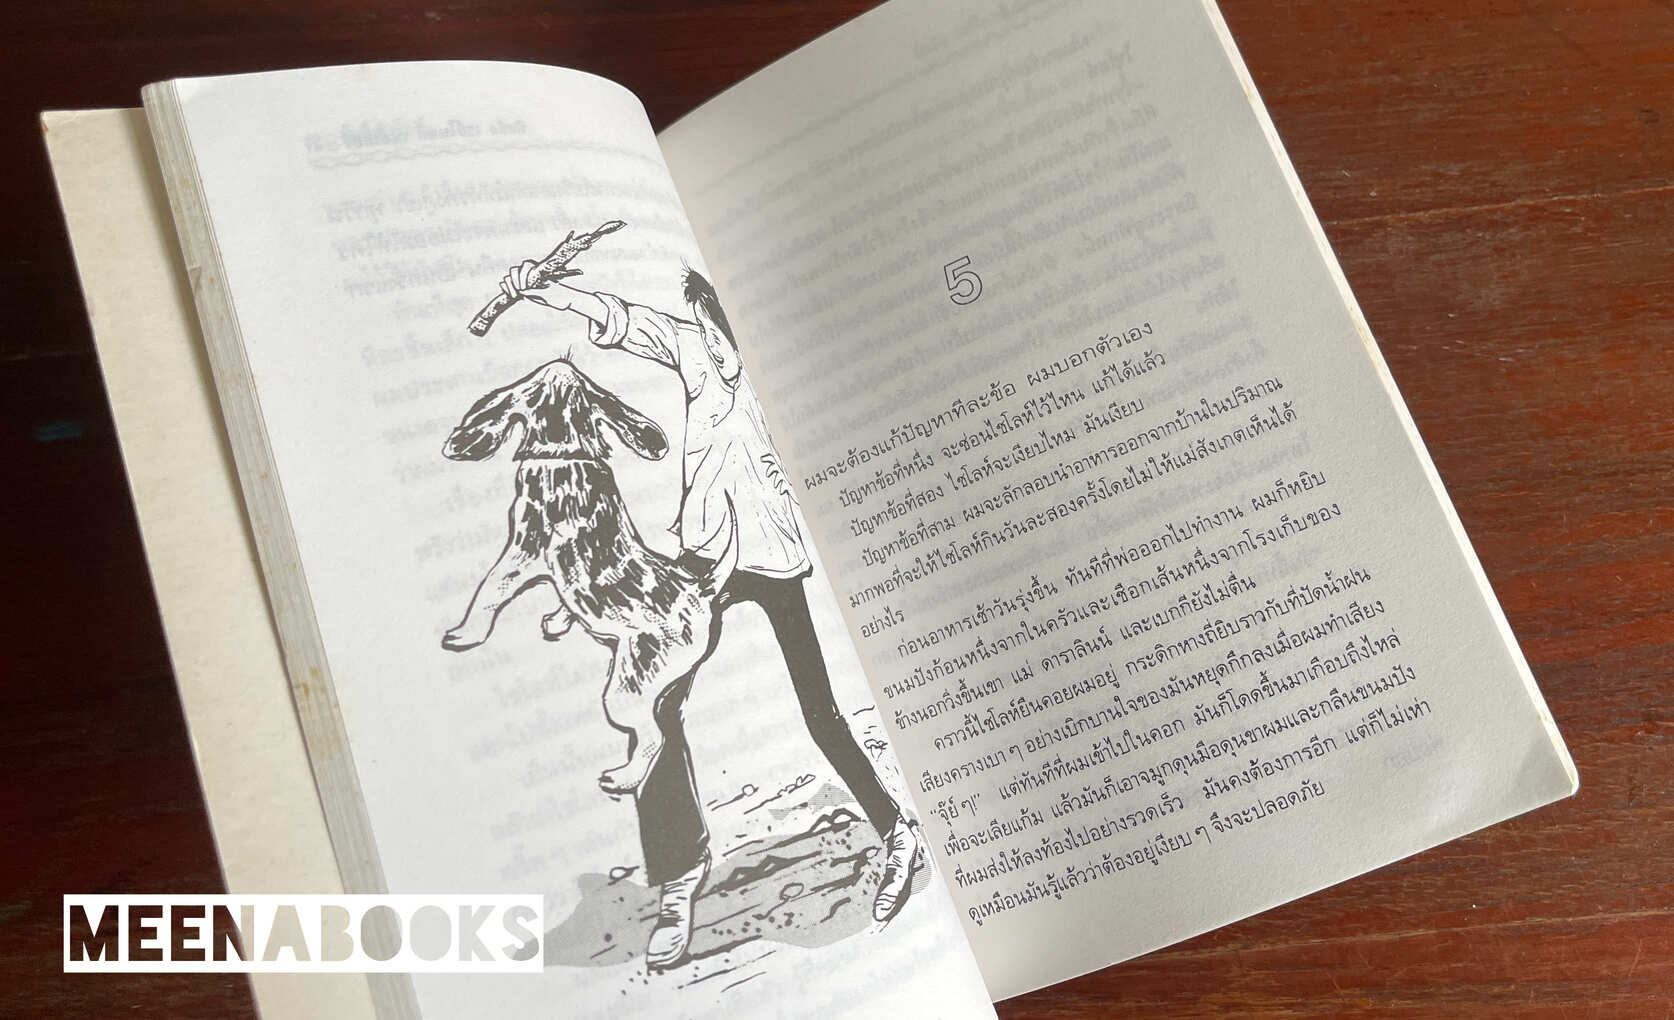 5
ผมจะต้องแก้ปัญหาทีละข้อ ผมบอกตัวเอง
ปัญหาข้อที่หนึ่ง จะซ่อนไชโลห์ไว้ไหน แก้ได้แล้ว
ปัญหาข้อที่สอง ไชโลห์จะเงียบไหม มันเงียบ
ปัญหาข้อที่สาม ผมจะลักลอบนำอาหารออกจากบ้านในปริมาณ
มากพอที่จะให้ไชโลห์กินวันละสองครั้งโดยไม่ให้แม่สังเกตเห็นได้
อย่างไร
ก่อนอาหารเช้าวันรุ่งขึ้น ทันทีที่พ่อออกไปทำงาน ผมก็หยิบ
ขนมปังก้อนหนึ่งจากในครัวและเชือกเส้นหนึ่งจากโรงเก็บของ
ข้างนอกวิ่งขึ้นเขา แม่ ดาราลินน์ และเบกกียังไม่ตื่น
คราวนี้ไชโลห์ยืนคอยผมอยู่ กระดิกหางถี่ยิบราวกับที่ปัดน้ำฝน
เสียงครางเบา ๆ อย่างเบิกบานใจของมันหยุดกึกลงเมื่อผมทำเสียง
“จุ๊ย์ ๆ!” แต่ทันทีที่ผมเข้าไปในคอก มันก็โดดขึ้นมาเกือบถึงไหล่
เพื่อจะเลียแก้ม แล้วมันก็เอาจมูกดุนมือดุนขาผมและกลืนขนมปัง
ที่ผมส่งให้ลงท้องไปอย่างรวดเร็ว มันคงต้องการอีก แต่ก็ไม่เห่า
ดูเหมือนมันรู้แล้วว่าต้องอยู่เงียบ ๆ จึงจะปลอดภัย
MEENABOOKS